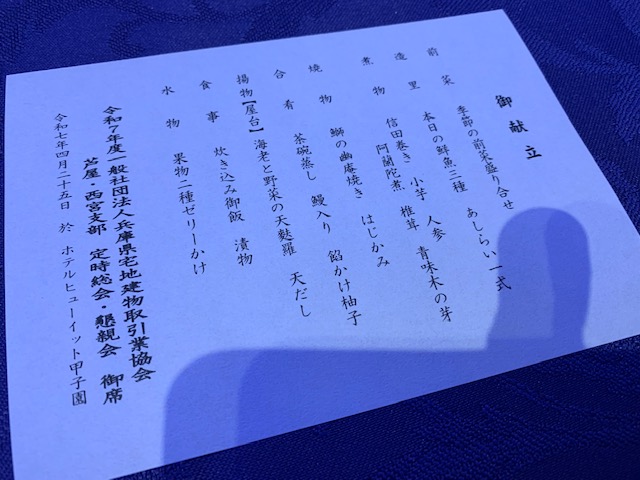 御献立
前菜 季節の前菜盛り合せ あしらい一式
造里 本日の鮮魚三種
煮物 信田巻き 小芋 人参 青味木の芽
阿蘭陀煮 椎茸
焼物 鰤の幽庵焼き はじかみ
合肴 茶碗蒸し 鰻入り 餡かけ柚子
揚物【屋台】海老と野菜の天麩羅 天だし
食事 炊き込み御飯 漬物
水物 果物二種ゼリーかけ
令和7年度一般社団法人兵庫県宅地建物取引業協会
芦屋・西宮支部 定時総会・懇親会 御席
令和七年四月二十五日 於 ホテルヒューイット甲子園